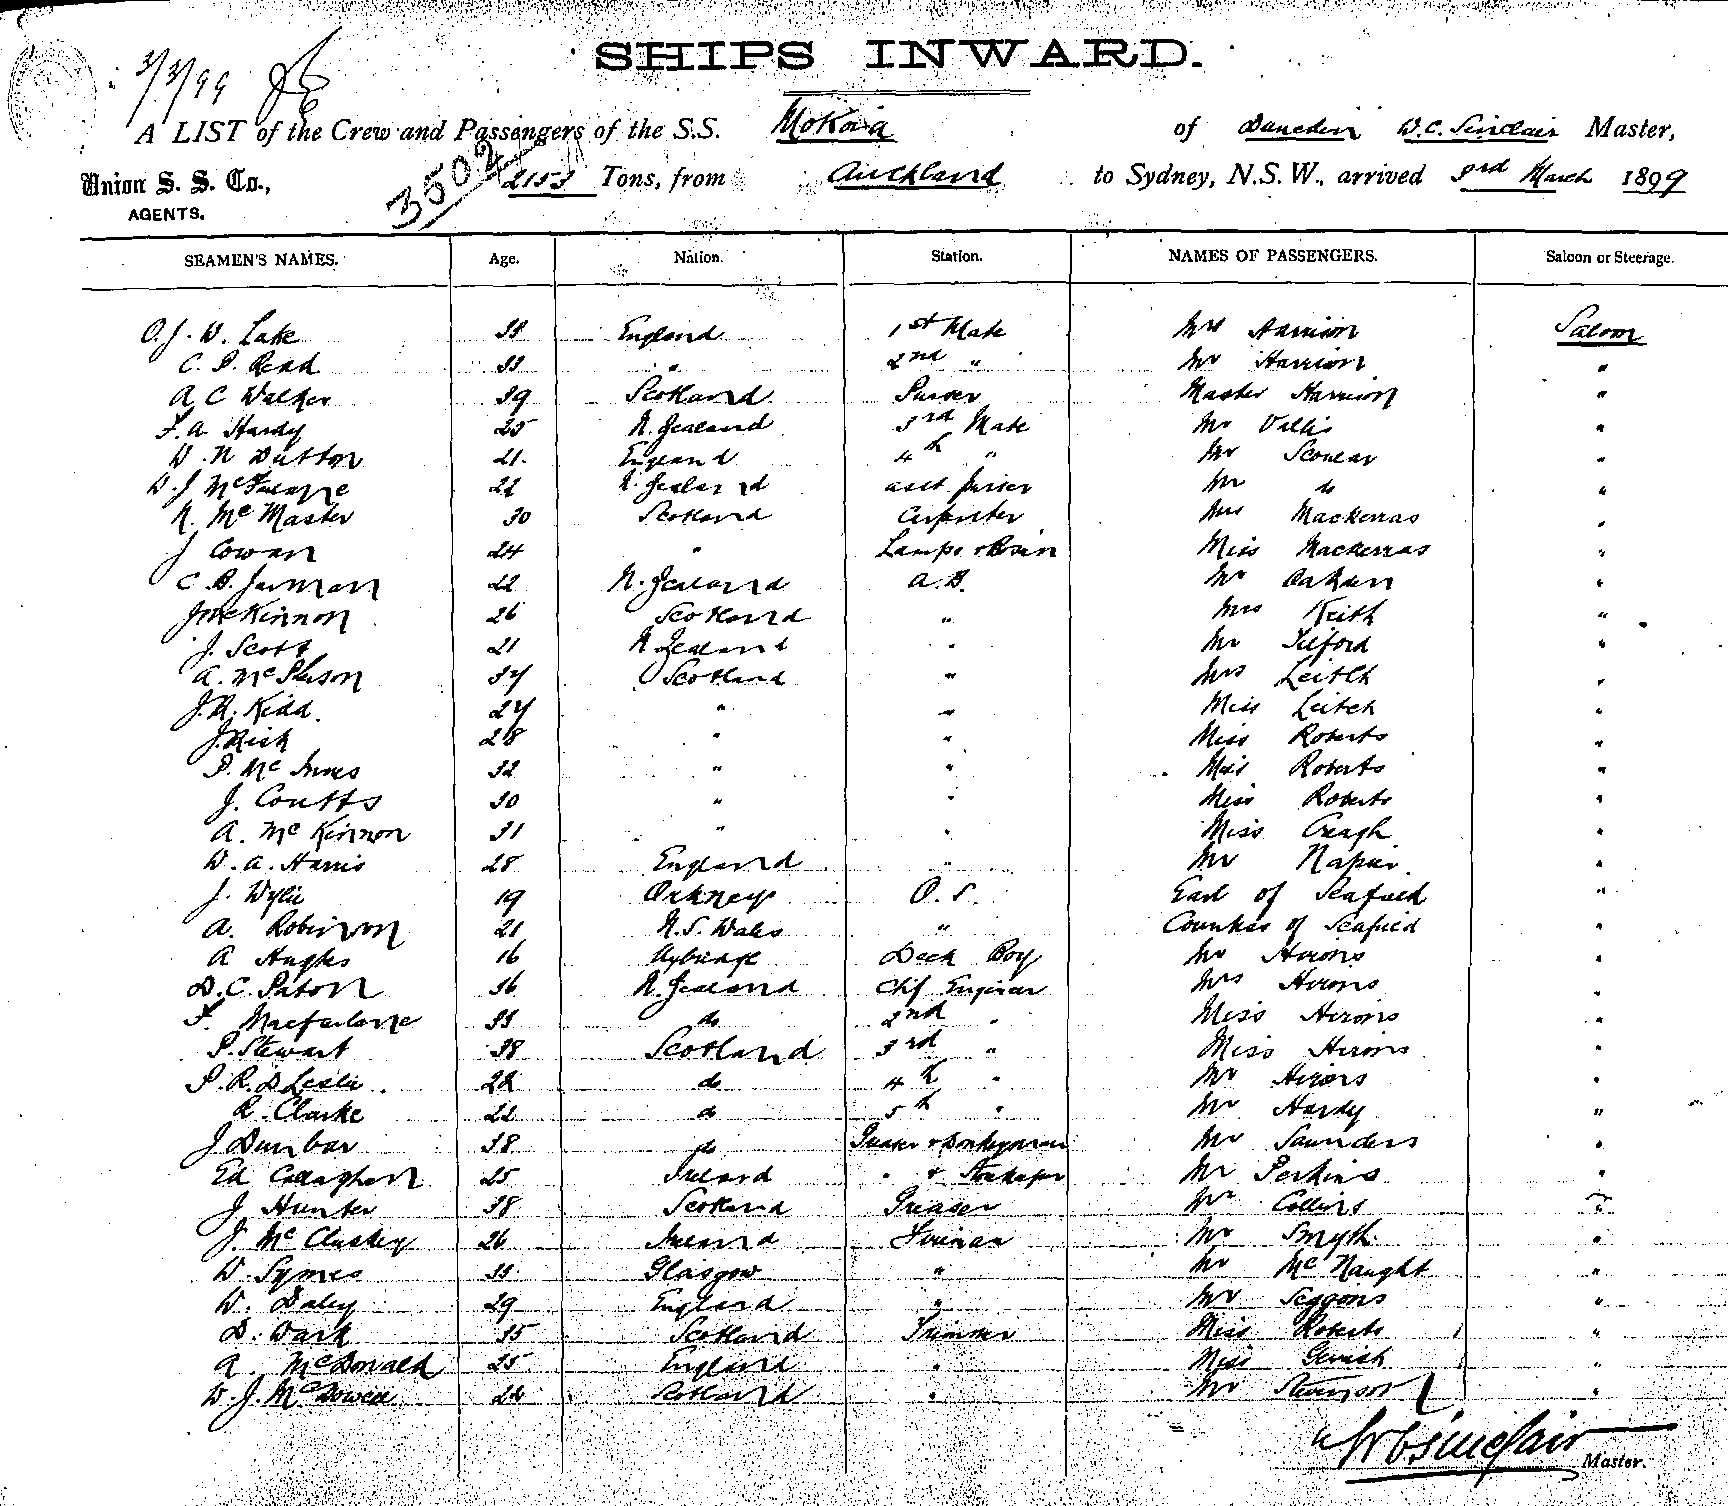 3/3/99
SHIPS INWARD.
A LIST of the Crew and Passengers of the S.S. Mokoia of Dunedin W.C. Sinclair Master,
Union S. S. Co., AGENTS. 3502 2153 Tons, from Auckland to Sydney, N.S.W., arrived 3rd March 1899
SEAMEN'S NAMES. Age. Nation. Station. NAMES OF PASSENGERS. Saloon or Steerage.
O.J.W. Lake England 1st Mate Mrs Harrison Saloon
C. P. Read 33 " 2nd " Mr Harrison "
A C Walker 39 Scotland Purser Master Harrison "
F. A Hardy 25 N. Zealand 3rd Mate Mr Vallis "
W. N Dutton 21 England 4th " Mr "
W.J McFarlane 22 N. Zealand asst purser Mr do "
N. McMaster 30 Scotland Carpenter Mrs Mackerras "
J Cowan 24 " Lamps & Bosun Miss Mackerras "
C. B. Jarman 22 N. Zealand A.B. Mr "
J McKinnon 26 Scotland " Mrs Keith "
J. Scott 21 N Zealand " Mr Telford "
A. McPherson 37 Scotland " Mrs Leitch "
J.R. Kidd 27 " " Miss Leitch "
J. Rick 28 " " Miss Roberts "
P. McInnes 32 " " Miss Roberts "
J. Coutts 30 " " Miss Roberts "
A. McKinnon 31 " " Miss Creagh "
W. A. Harris 28 England " Mr Napier "
J. Wylie 19 Orkneys O.S. Earl of Seafield "
A. Robinson 21 N.S. Wales " Countess of Seafield "
A Hughes 16 Uxbridge Deck Boy Mr Hirons "
D. C. Paton 36 N. Zealand Chf Engineer Mrs Hirons "
F. Macfarlane 33 do 2nd " Miss Hirons "
P. Stewart 38 Scotland 3rd " Miss Hirons "
P. R. D Leslie 28 do 4th " Mr Hirons "
R. Clarke 22 do 5th " Mr Hardy "
J Dunbar 38 do Greaser & Donkeyman Mr Saunders "
Ed Callaghan 25 Ireland " & Storekeeper Mr Perkins "
J Hunter 38 Scotland Greaser Mr Collins "
J. McCluskey 26 Ireland Fireman Mr Smyth "
W. Symes 35 Glasgow " Mr McNaught "
W. Daley 29 England " Mr Seggons "
D. Wark 35 Scotland Trimmer Miss Roberts "
A. McDonald 25 England " Miss "
W. J. McDowell 22 Scotland " Mr Stevenson "
WCSinclair
Master.